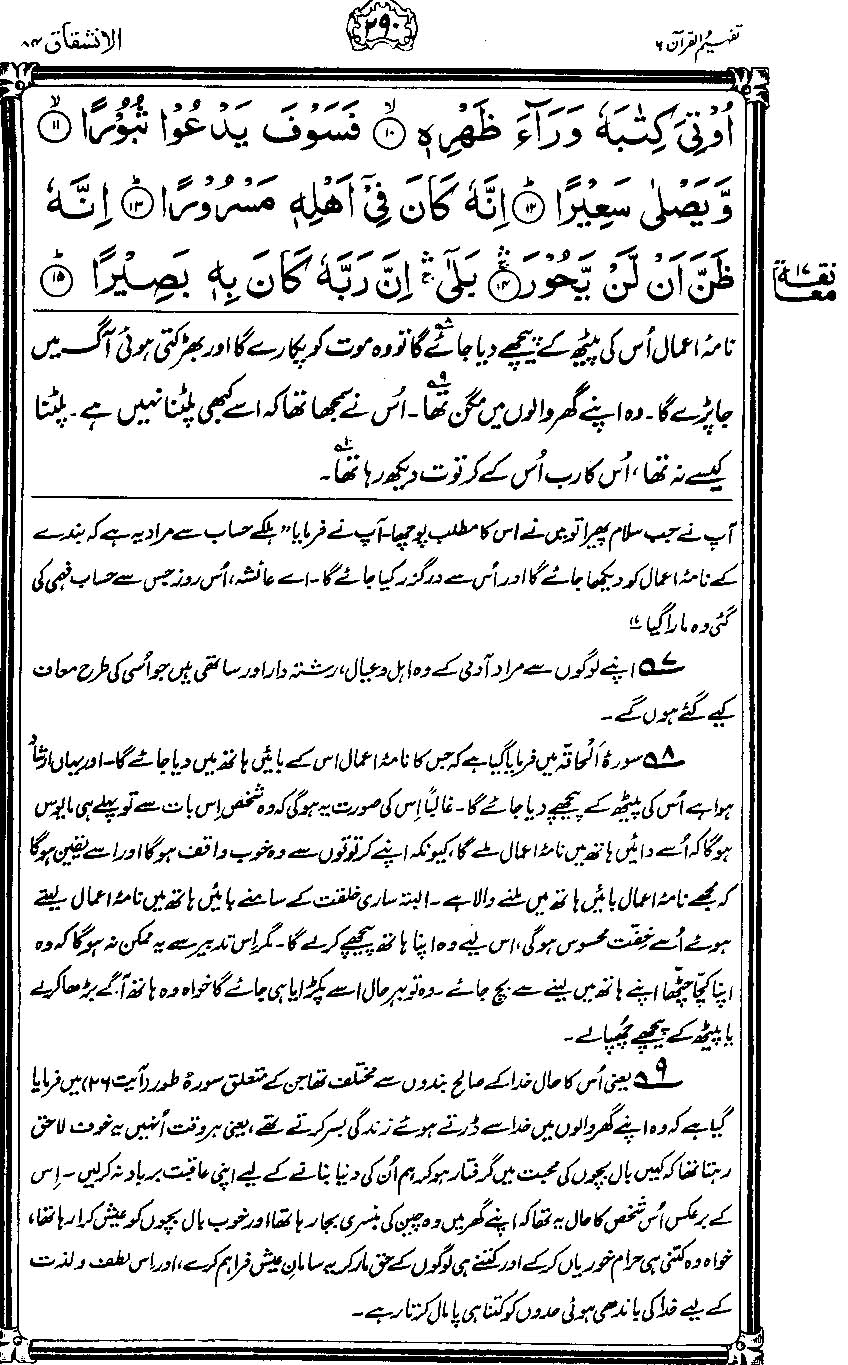 تفہیم القرآن ۶
۲۹۰
الانشقاق ۸۴
اُوْتِیَ کِتٰبَهٗ وَرَآءَ ظَهْرِهٖ ﴿۱۰﴾ فَسَوْفَ یَدْعُوْا ثُبُوْرًا ﴿۱۱﴾
وَّیَصْلٰی سَعِیْرًا ﴿۱۲﴾ اِنَّهٗ کَانَ فِیْۤ اَهْلِهٖ مَسْرُوْرًا ﴿۱۳﴾ اِنَّهٗ
ظَنَّ اَنْ لَّنْ یَّحُوْرَ ﴿۱۴﴾ بَلٰۤی اِنَّ رَبَّهٗ کَانَ بِهٖ بَصِیْرًا ﴿۱۵﴾
نامۂ اعمال اُس کی پیٹھ کے پیچھے دیا جائے گا۸ تو وہ موت کو پکارے گا اور بھڑکتی ہوئی آگ میں
جا پڑے گا۔ وہ اپنے گھر والوں میں مگن تھا۹۔ اُس نے سمجھا تھا کہ اسے کبھی پلٹنا نہیں ہے۔ پلٹنا
کیسے نہ تھا، اُس کا رب اُس کے کرتوت دیکھ رہا تھا۱۰۔
آپ نے جب سلام پھیرا تو میں نے اس کا مطلب پوچھا۔ آپ نے فرمایا ”ہلکے حساب سے مراد یہ ہے کہ بندے
کے نامۂ اعمال کو دیکھا جائے گا اور اُس سے درگزر کیا جائے گا۔ اے عائشہ، اُس روز جس سے حساب فہمی کی
گئی وہ مارا گیا“
۷ اپنے لوگوں سے مراد آدمی کے وہ اہل و عیال، رشتہ دار اور ساتھی ہیں جو اُسی کی طرح معاف
کیے گئے ہوں گے۔
۸ سورۂ اَلحاقّہ میں فرمایا گیا ہے کہ جس کا نامۂ اعمال اس کے بائیں ہاتھ میں دیا جائے گا۔ اور یہاں ارشاد
ہوا ہے اُس کی پیٹھ کے پیچھے دیا جائے گا۔ غالباً اِس کی صورت یہ ہوگی کہ وہ شخص اِس بات سے تو پہلے ہی مایوس
ہوگا کہ اُسے دائیں ہاتھ میں نامۂ اعمال ملے گا، کیونکہ اپنے کرتوتوں سے وہ خوب واقف ہوگا اور اسے یقین ہوگا
کہ مجھے نامۂ اعمال بائیں ہاتھ میں ملنے والا ہے۔ البتہ ساری خلقت کے سامنے بائیں ہاتھ میں نامۂ اعمال لیتے
ہوئے اُسے خِفّت محسوس ہوگی، اس لیے وہ اپنا ہاتھ پیچھے کر لے گا۔ مگر اِس تدبیر سے یہ ممکن نہ ہوگا کہ وہ
اپنا کچّا چٹّھا اپنے ہاتھ میں لینے سے بچ جائے۔ وہ تو بہرحال اسے پکڑایا ہی جائے گا خواہ وہ ہاتھ آگے بڑھا کر لے
یا پیٹھ کے پیچھے چُھپا لے۔
۹ یعنی اُس کا حال خدا کے صالح بندوں سے مختلف تھا جن کے متعلق سورۂ طور (آیت ۲۶) میں فرمایا
گیا ہے کہ وہ اپنے گھر والوں میں خدا سے ڈرتے ہوئے زندگی بسر کرتے تھے، یعنی ہر وقت اُنہیں یہ خوف لاحق
رہتا تھا کہ کہیں بال بچوں کی محبت میں گرفتار ہو کر ہم اُن کی دنیا بنانے کے لیے اپنی عاقبت برباد نہ کر لیں۔ اِس
کے برعکس اُس شخص کا حال یہ تھا کہ اپنے گھر میں وہ چین کی بنسری بجا رہا تھا اور خوب بال بچوں کو عیش کرا رہا تھا،
خواہ وہ کتنی ہی حرام خوریاں کر کے اور کتنے ہی لوگوں کے حق مار کر یہ سامانِ عیش فراہم کرے، اور اس لطف و لذت
کے لیے خدا کی باندھی ہوئی حدوں کو کتنا ہی پامال کرتا رہے۔